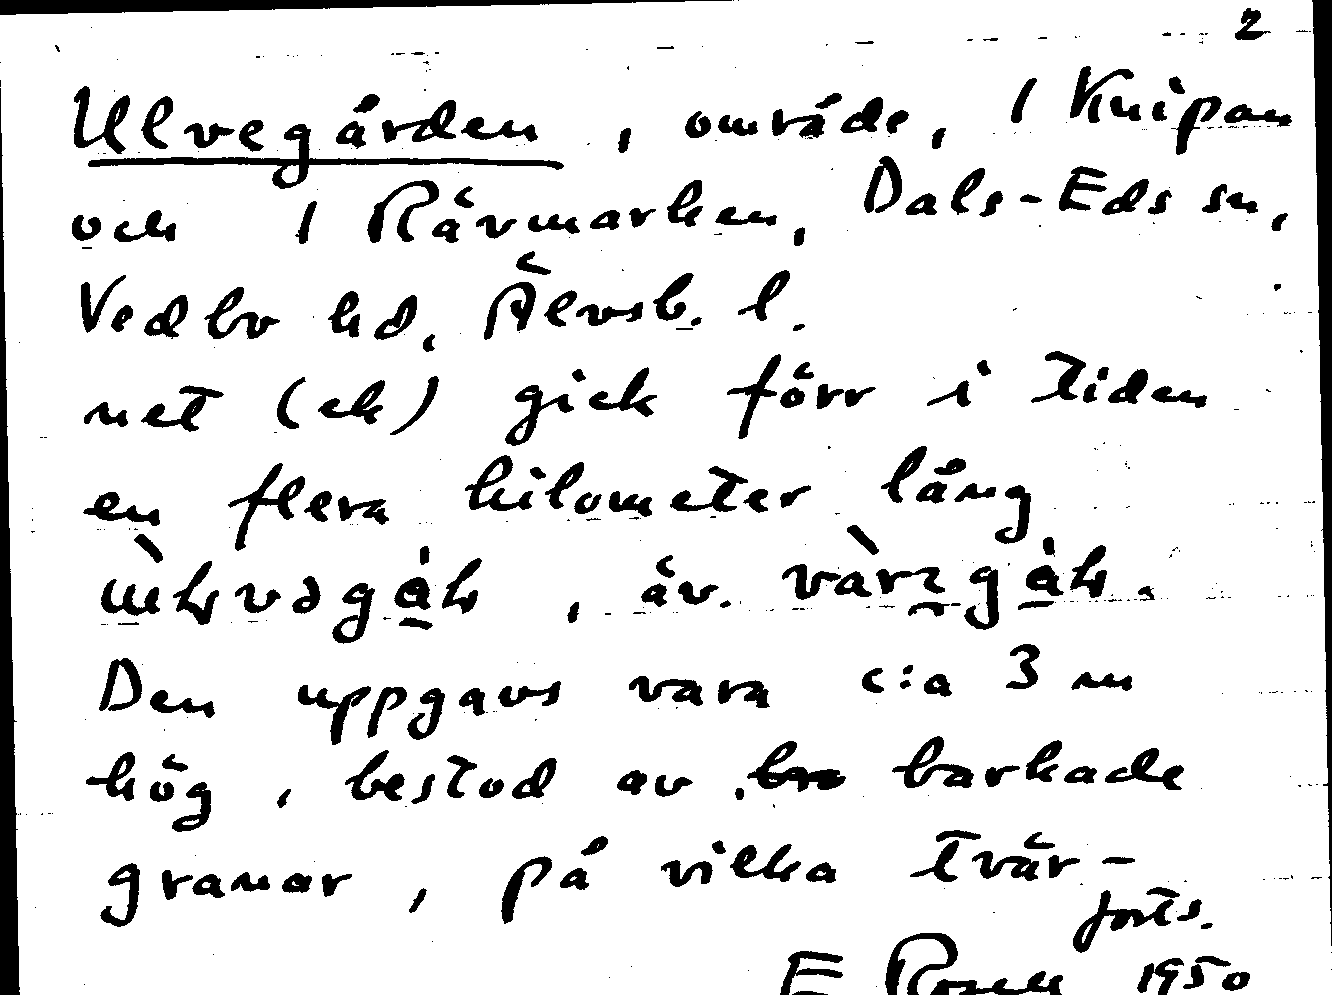 2
Ulvegården, område, 1 Knipan
och 1 Rävmarken, Dals-Eds sn,
Vedbo hd, Älvsb. l.
net (ek) gick förr i tiden
en flera kilometer lång
, äv.
Den uppgavs vara c:a 3 m
hög, bestod av barkade
granar, på vilka tvär-
forts.
E 1950